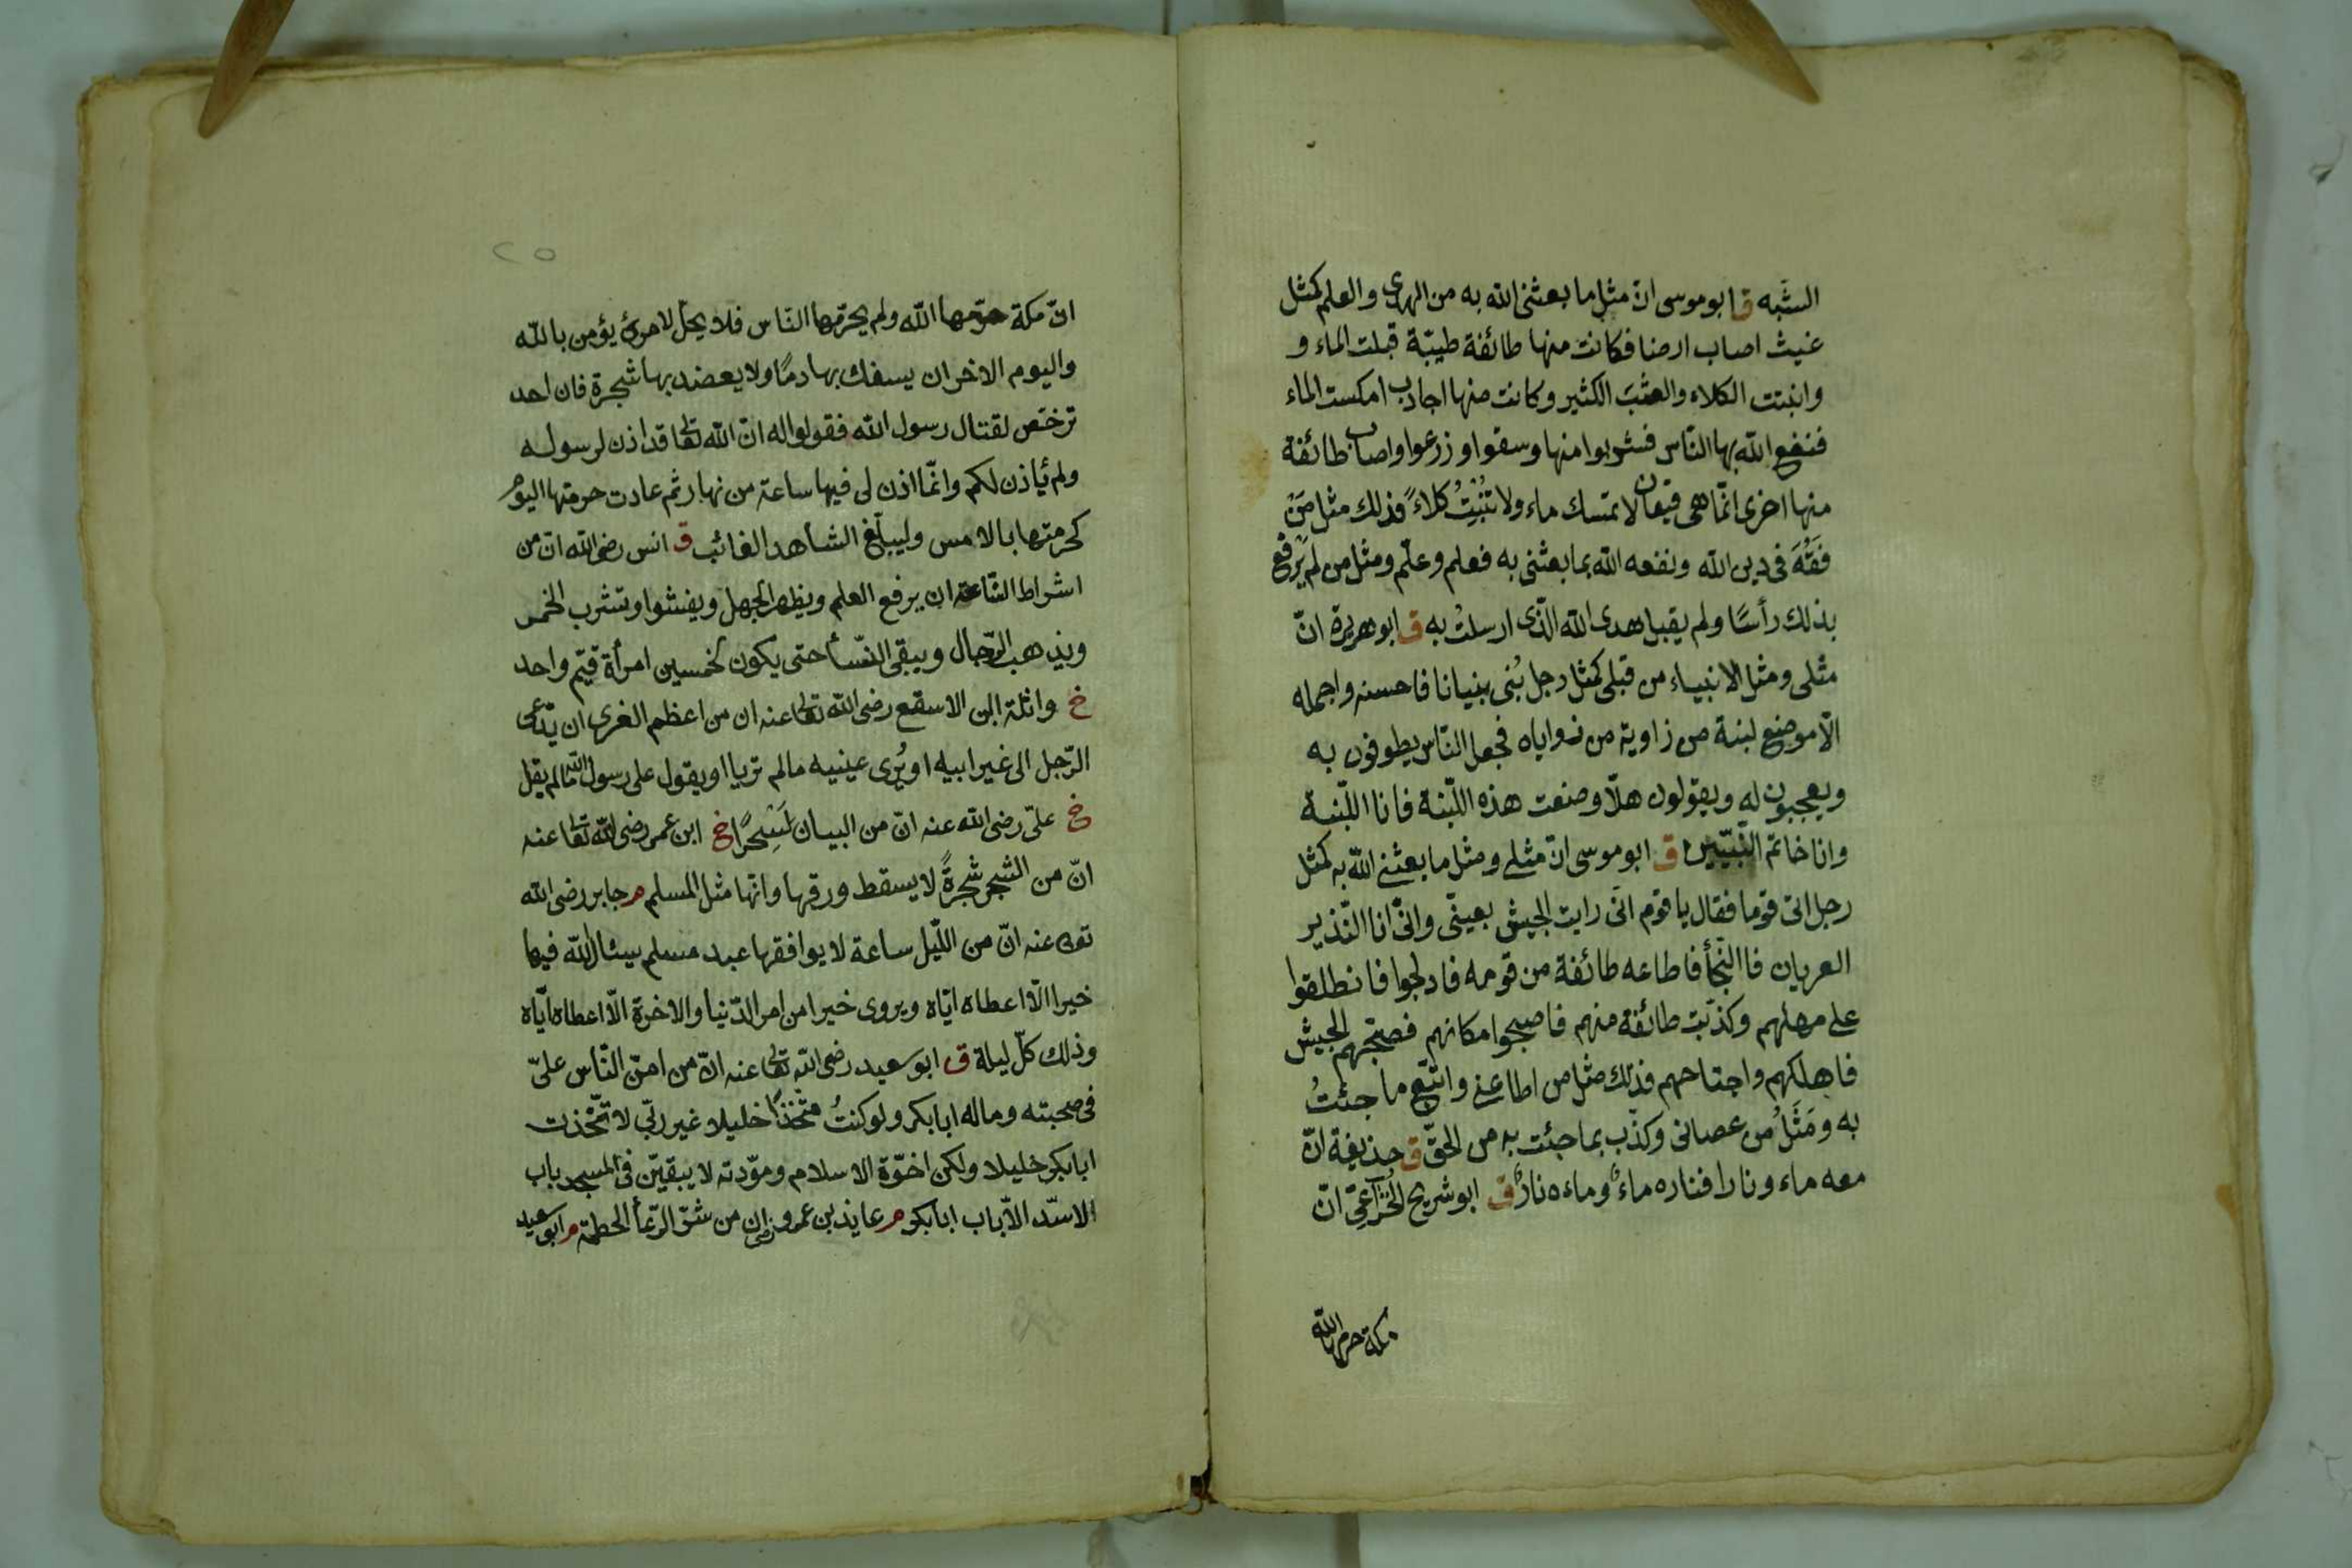 الشبه ق ابو موسى انّ مثل ما بعثنى الله به من الهدى والعلم كمثل
غيث اصاب ارضا فكانت منها طائفة طيبّة قبلت الماء و
وانبتت الكلاء والعشبَ الكثير وكانت منها اجادب امكست الماء
فنفع الله بها النّاس فشربوا منها وسقوا وزرعوا واصاب طائفة
منها اخرى انّما هى قيعان لا تمسك ماء ولا تُنْبِتُ كلاءً فذلك مثل مَنْ
فَقُهَ فى دين الله ونفعه الله بما بعثنى به فعلم وعلّم ومثل من لم يَرفع
بذلك رأسًا ولم يقبل هدى الله الّذى ارسلتُ به ق ابو هريرة انّ
مثلى ومثل الانبياء من قبلى كمثل رجل بُنى بنيانا فاحسنه واجمله
الّا موضع لبنة من زاوية من زواياه فجعل النّاس يطوفون به
ويعجبون له ويقولون هلّا وضعت هذه اللّبنة فانا اللّبنة
وانا خاتم النّبيّين ق ابو موسى انّ مثلى ومثل ما بعثنى الله به كمثل
رجل اتى قوما فقال يا قوم انّى رايت الجيش بعينّى وانّى انا النّذير
العريان فاالنّجأ فاطاعه طائفة من قومه فادلجوا فانطلقوا
على مهلهم وكذّبت طائفة منهم فاصبحوا مكانهم فصبّحهم الجيش
فاهلكهم واجتاحهم فذلك مثل من اطاعنى واتّبع ما جئتُ
به ومَثَلُ من عصانى وكذّب بما جئت به من الحقّ ق حذيفة انّ
معه ماء ونارا فناره ماءٌ وماءه نارٌ ق ابو شريح الخُزَاعِىّ انّ
مكة حرمها الله
٢٥
انّ مكة حرّمها الله ولم يحرّمها النّاس فلا يحلّ لامرئ يؤمن بالله
واليوم الاخر ان يسفك بها دمًا ولا يعضد بها شجرة فان احد
ترخّص لقتال رسول الله فقولوا له انّ الله تعالى قد اذن لرسوله
ولم يأذن لكم وانّما اذن لى فيها ساعة من نهار ثم عادت حرمتها اليوم
كحرمتها بالامس وليبلّغ الشاهد الغائب ق انس رضى الله انّ من
اشراط السّاعة ان يرفع العلم ويظهر الجهل ويفشوا وتشرب الخمر
ويذهب الرّجال ويبقى النّسأ حتى يكون لخمسين امرأة قيّم واحد
خ واثلة ابن الاسقع رضى الله تعالى عنه ان من اعظم الفرى ان يدّعى
الرّجل الى غير ابيه او يُرى عينيه مالم تريا او يقول على رسول الله مالم يقل
خ علىّ رضى الله عنه انّ من البيان لَسِحْرًا خ ابن عمر رضى الله تعالى عنه
انّ من الشجر شجرةً لا يسقط ورقها وانّها مثل المسلم م جابر رضى الله
تعالى عنه انّ من اللّيل ساعة لا يوافقها عبد مسلم يسئال الله فيها
خيرا الّا اعطاه ايّاه ويروى خيرا من امر الدّنيا والاخرة الّا اعطاه ايّاه
وذلك كلّ ليلة ق ابو سعيد رضى الله تعالى عنه انّ من امنّ النّاس علىّ
فى صحبته وماله ابا بكر ولو كنتُ متّخذًا خليلا غير ربّى لاتّخذت
ابا بكر خليلا ولكن اخوّة الاسلام ومودّته لا يبقينّ فى المسجد باب
الا سدّ الاّ باب ابا بكر م عايذ بن عمرو رضى ان من شرّ الرّعأ الحطمة م ابو سعيد